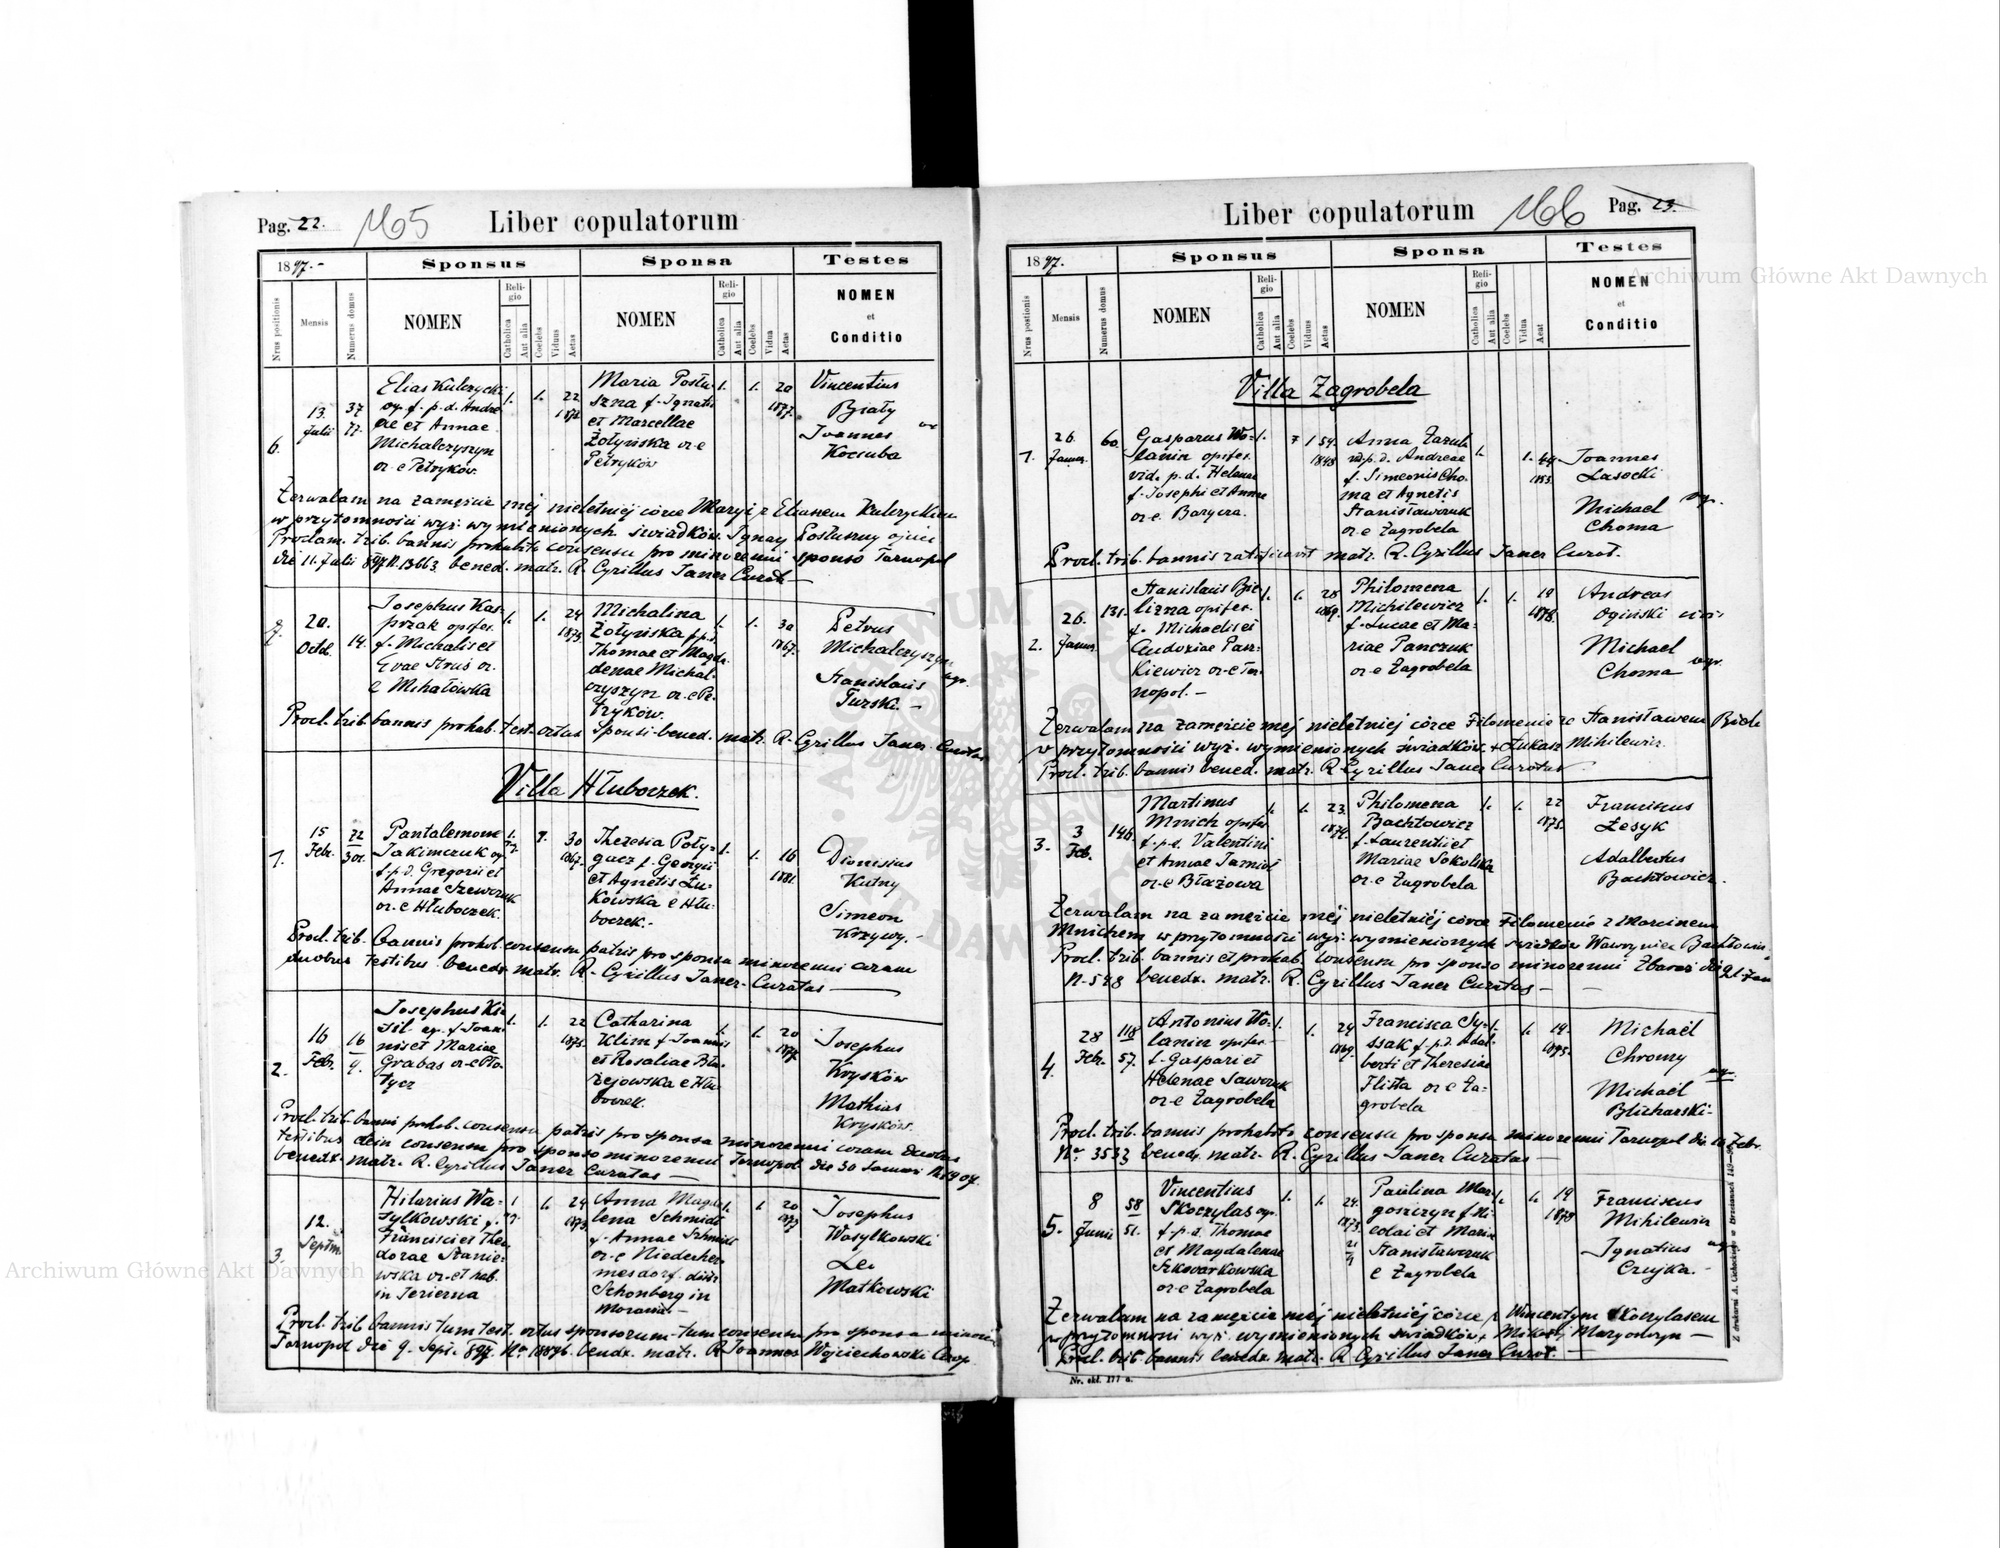 Pag. 22.
165
Liber copulatorum
1897.-
Sponsus
Sponsa
Testes
Nrus positionis
Mensis
Numerus domus
NOMEN
Religio
Catholica
Aut alia
Coelebs
Viduus
Aetas
NOMEN
Religio
Catholica
Aut alia
Coelebs
Vidua
Aetas
NOMEN
et
Conditio
6.
13.
Julii
37
77.
Elias Kulczycki
ag. f. p. d. Andre
ae et Annae
Michalczyszyn
or. e Petryków.
1.
1.
22
Maria Postu-
szna f. Ignatii
et Marcellae
Żołyńska or. e
Petryków
1.
1.
20
1877.
Vincentius
Biały
Joannes
Kociuba
Zezwalam na zamęźcie mej nieletniej córce Maryi z Eliaszem Kulczyckim
w przytomności wyż. wymienionych świadków. Ignacy Postuszny ojciec
Proclam. trib. bannis prohabito consensu pro minorenni sponso Tarnopol
die 11. Julii 897 N. 13663. bened. matr. R. Cyrillus Janer Curat.
7.
20.
Octob.
14.
Josephus Kas-
przak opifex.
f. Michalis et
Evae Struś or.
e Mihałówka
1.
1.
24
1873.
Michalina
Żołyńska f. p. d.
Thomae et Magda-
denae Michal-
czyszyn or. e Pe-
tryków.
1.
1.
30
1867.
Petrus
Michalczyszyn
Stanislaus
Turski. -
Procl. trib. bannis prohab. test. ortus Sponsi bened. matr. R. Cyrillus Janer Curatus
Villa Hłuboczek.
1.
15
Febr.
72
301.
Pantalemone
Jakimczuk ag.
f. p. d. Gregorii et
Annae Szewczuk
or. e Hłuboczek.
1.
30
1867.
Theresia Poły-
gacz f. Georgii
et Agnetis Żu-
kowska e Hłu-
boczek. -
1.
1.
16
1881.
Dionisius
Kutny
Simeon
Krzywy. -
Procl. trib. bannis prohab. consensu patris pro sponsa minorenni coram
duobus testibus. benedx. matr. R. Cyrillus Janer. Curatas
2.
16
Febr.
16
9.
Josephus Ki-
sil ag. f. Joan-
nis et Mariae
Grabas or. e Pło-
tycz
1.
1.
22
1875.
Catharina
Klim f. Joannis
et Rosaliae Bła-
żejowska e Hłu-
boczek.
1.
1.
20
1877.
Josephus
Kryśków
Mathias
Kryśków.
Procl. trib. bannis prohab. consensu patris pro sponsa minorenni coram duobus
testibus dein consensu pro sponso minorenni Tarnopol die 30 Januar
benedx. matr. R. Cyrillus Janer Curatas
3.
12.
Septem.
Hilarius Wa-
sylkowski f.
Francisci et Theo-
dorae Stanie-
wska or. et hab.
in Jezierna
1
1.
24
1873.
Anna Magda-
lena Schmidt
f. Annae Schmidt
or. e Niederher-
mesdorf
Schönberg in
Moravia -
1.
20
1877
Josephus
Wasylkowski
Leo
Matkowski
Procl. trib. bannis tum test. ortus sponsorum tum consensu pro sponsa minoren.
Tarnopol die 9. Sept. 897. No 18896. bendx. matr. R. Joannes Wojciechowski Coop.
Liber copulatorum
166
Pag. 23.
1897.
Sponsus
Sponsa
Testes
Nrus postionis
Mensis
Numerus domus
NOMEN
Religio
Catholica
Aut alia
Coelebs
Viduus
Aetas
NOMEN
Religio
Catholica
Aut alia
Coelebs
Vidua
Aeat
NOMEN
et
Conditio
Villa Zagrobela
1.
26.
Januar.
60.
Gasparus Wo-
lanin opifex.
vid. p. d. Helenae
f. Josephi et Annae
or. e. Baryera.
1.
1
54.
1843
Anna Zazula
vid. p. d. Andreae
f. Simeonis Cho-
ma et Agnetis
Stanisławczuk
or. e Zagrobela
1.
1.
44
1853.
Joannes
Lasocki
Michael
Choma
Procl. trib. bannis ratificavit matr. R. Cyrillus Janer Curat.
2.
26.
Januar.
131.
Stanislaus Bie-
lizna opifex.
f. Michaelis et
Eudoxiae Pasz-
kiewicz or. e Tar-
nopol. -
1.
1.
28
1869.
Philomena
Michilewicz
f. Lucae et Ma-
riae Panczuk
or. e Zagrobela
1.
1.
19
1878.
Andreas
Ogiński
Michael
Choma
Zezwalam na zamęźcie mej nieletniej córce Filomenie ze Stanisławem Bieli
w przytomności wyż. wymienionych świadków. + Łukasz Mihilewicz.
Procl. trib. bannis bened. matr. R. Cyrillus Janer Curatus
3.
3
Feb.
146.
Martinus
Mnich opifex
f. p. d. Valentini
et Annae Jamioł
or. e Błażowa
1.
1.
23
1874.
Philomena
Bachtowicz
f. Laurentii et
Mariae Sokolska
or. e Zagrobela
1.
1.
22
1875.
Franciscus
Lesyk
Adalbertus
Bachtowicz.
Zezwalam na zamęźcie mej nieletniej córce Filomenie z Marcinem
Mnichem w przytomności wyż. wymienionych świadków Wawrzyniec Bachtowicz
Procl. trib. bannis et prohab. consensu pro sponso minorenni Zbaraż die 21. Jan
N. 548 benedx. matr. R. Cyrillus Janer Curatus -
4.
28
Febr.
118
57.
Antonius Wo-
lanin opifex -
f. Gaspari et
Helenae Sawczuk
or. e Zagrobela
1.
1.
24
Francisca Sy-
ssak f. p. d. Adal-
berti et Theresiae
Flista or. e Za-
grobela
1.
1.
19.
Michaël
Chromy
Michaël
Blicharski -
Procl. trib. bannis prohabito consensu pro sponsa minorenni Tarnopol die Febr.
No. 3533 benedx. matr. R. Cyrillus Janer Curatas
5.
8
Junii
58
51.
Vincentius
Skoczylas ag.
f. p. d. Thomae
et Magdalenae
Szkwarkowska
or. e Zagrobela
1.
1.
24.
1873.
Paulina Mar-
goszczyn f. Ni-
colai et Mariae
Stanisławczuk
e Zagrobela
1.
1.
19
1878
Franciscus
Mihilewicz
Ignatius
Czujka. -
Zezwalam na zamęźcie mej nieletniej córce z Wincentym Skoczylasem
w przytomności wyż. wymienionych świadków + Mikołaj Margoszczyn -
Procl. trib. bannis benedx. matr. R. Cyrillus Janer Curat. -
Nr. okl. 177 a.
Archiwum Główne Akt Dawnych
Archiwum Główne Akt Dawnych